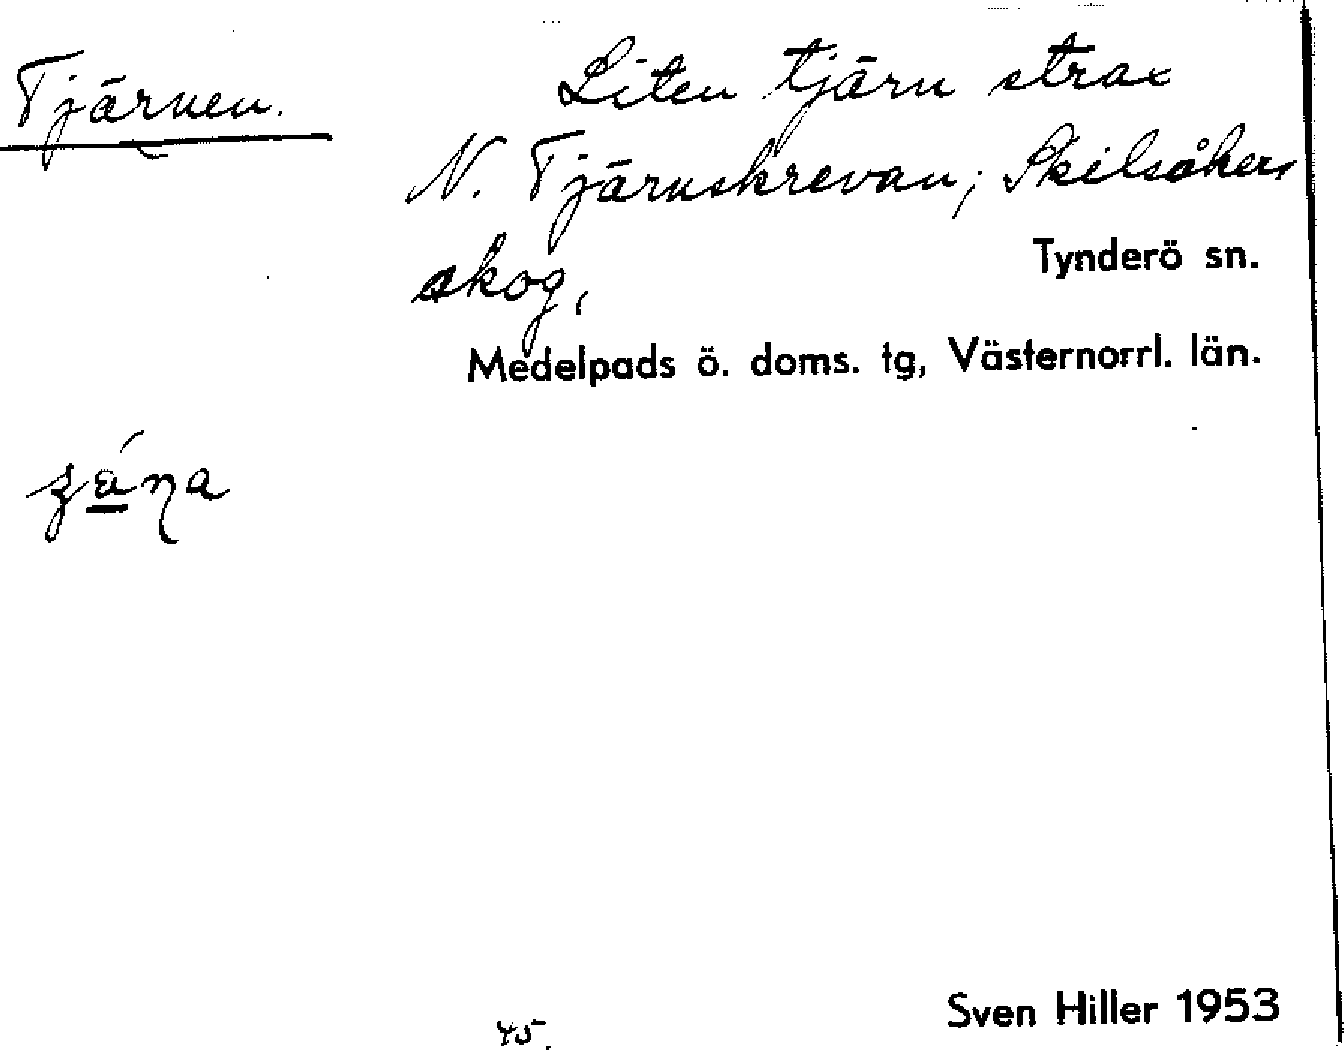 Tjärnen.
Liten tjärn strax
N. Tjärnskrevan; Skilsåkers
skog,
Tynderö sn.
Medelpads ö. doms. tg, Västernorrl. län.
Sven Hiller 1953
45.